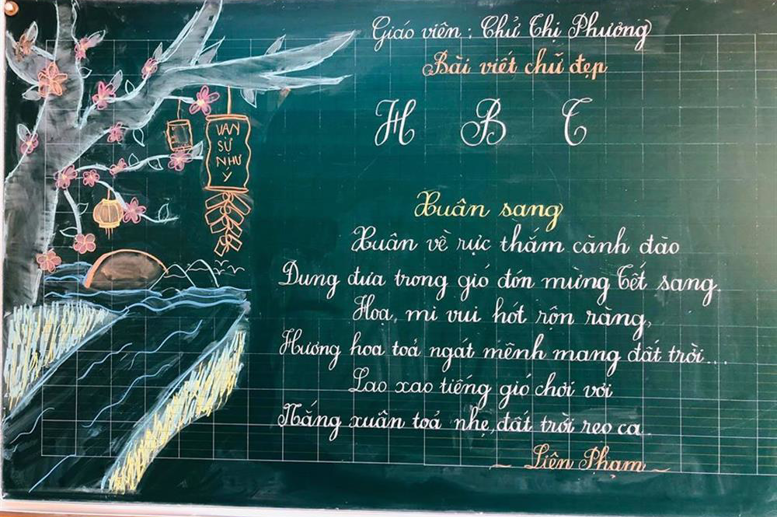 Giáo viên: Chử Thị Phương
Bài viết chữ đẹp
H B T
VẠN
SỰ
NHƯ
Ý
Xuân sang
Xuân về rực thắm cành đào
Dung đưa trong gió đón mừng Tết sang.
Hoạ mi vui hót rộn ràng,
Hương hoa toả ngát mênh mang đất trời...
Lao xao tiếng gió chơi vơi
Nắng xuân toả nhẹ, đất trời reo ca.
~ Liên Phạm ~